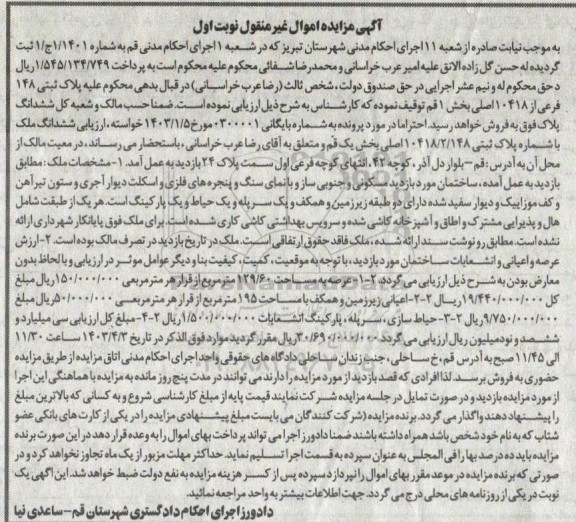 آگهی مزایده اموال غیر منقول نوبت اول
به موجب نیابت صادره از شعبه ۱۱ اجرای احکام مدنی شهرستان تبریز که در شعبه ۱ اجرای احکام مدنی قم به شماره ۱/۱۴۰۱ج/۱ ثبت
گردیده له حسن گل زاده الانق علیه امیر عرب خراسانی و محمدرضا شفائی محکوم علیه محکوم است به پرداخت ۱/۵۴۵/۱۳۴/۷۴۹ریال
در حق محکوم له و نیم عشر اجرایی در حق صندوق دولت، شخص ثالث (رضا عرب خراسانی) در قبال بدهی محکوم علیه پلاک ثبتی ۱۴۸
فرعی از ۱۰۴۱۸ اصلی بخش ۱ قم توقیف نموده که کارشناس به شرح ذیل ارزیابی نموده است. ضمنا حسب مالک و شعبه کل ششدانگ
پلاک فوق به فروش خواهد رسید. احتراما در مورد پرونده به شماره بایگانی ۰۳۰۰۰۰۱ مورخ ۱۴۰۳/۱/۵ خواسته، ارزیابی ششدانگ ملک
با شماره پلاک ثبتی ۱۰۴۱۸/۲/۱۴۸ اصلی بخش یک قم و متعلق به آقای رضا عرب خراسانی، باستحضار می رساند، در معیت مالک از
محل آن به آدرس: قم-بلوار دل آذر، کوچه ۴۲، انتهای کوچه فرعی اول سمت پلاک ۲۴ بازدید به عمل آمد. ۱-مشخصات ملک: مطابق
بازدید به عمل آمده، ساختمان مورد بازدید مسکونی و جنوبی ساز و بانمای سنگ و پنجره های فلزی و اسکلت دیوار آجری و ستون تیرآهن
و کف موزاییک و دیوار سفید شده دارای دو طبقه زیرزمین و همکف و یک سرپله و یک حیاط و یک پارکینگ است. هر یک از طبقت شامل
هال و پذیرایی مشترک و اطاق و آشپزخانه کاشی شده و سرویس بهداشتی کاشی کاری شده است. برای ملک فوق پایانکار شهرداری ارائه
نشده است. مطابق رونوشت سند ارائه شده، ملک فاقد حقوق ارتفاقی است. ملک در تاریخ بازدید در تصرف مالک بوده است. ۲-ارزش
عرصه و اعیانی و انشعابات ساختمان مورد بازدید، با توجه به موقعیت، کمیت، کیفیت بنا و دیگر عوامل موثر در ارزیابی و با لحاظ بدون
معارض بودن به شرح ذیل ارزیابی می گردد. ۲-۱-عرصه به مساحت ۱۲۹/۶۰ مترمربع از قرار هر مترمربعی ۱۵۰/۰۰۰/۰۰۰ریال مبلغ
کل ۱۹/۴۴۰/۰۰۰/۰۰۰ریال ۲-۲-اعیانی زیرزمین و همکف با مساحت ۱۹۵ مترمربع از قرار هر مترمربعی ۵۰/۰۰۰/۰۰۰ریال مبلغ
۹/۷۵۰/۰۰۰/۰۰۰ریال ۲-۳-حیاط سازی، سرپله، پارکینگ انشعابات ۱/۵۰۰/۰۰۰/۰۰۰ریال ۲-۴-مبلغ کل ارزیابی سی میلیارد و
ششصد و نود میلیون ریال ارزیابی می گردد ۳۰/۶۹۰/۰۰۰/۰۰۰ریال مقرر گردید موارد فوق الذکر در تاریخ ۱۴۰۳/۴/۳ ساعت ۱۱/۳۰
الی ۱۱/۴۵ صبح به آدرس قم، خ ساحلی، جنب زندان ساحلی دادگاه های حقوقی واحد اجرای احکام مدنی اتاق مزایده از طریق مزایده
حضوری به فروش برسد. لذا افرادی که قصد بازدید از مورد مزایده را دارند می توانند در مدت پنج روز مانده به مزایده با هماهنگی این اجرا
از مورد مزایده بازدید و در صورت تمایل در جلسه مزایده شرکت نمایند قیمت پایه از مبلغ کارشناسی شروع و به کسانی که بالاترین مبلغ
را پیشنهاد دهند واگذار می گردد. برنده مزایده (شرکت کنندگان می بایست مبلغ پیشنهادی مزایده را در یکی از کارت های بانکی عضو
شتاب که به نام خود شخص باشد همراه داشته باشند ضمنا دادورز اجرا می تواند پرداخت بهای اموال را به وعده قرار دهد در این صورت برنده
مزایده باید ده درصد بها را فی المجلس به عنوان سپرده به قسمت اجرا تسلیم نماید. حداکثر مهلت مزبور از یک ماه تجاوز نخواهد کرد و در
صورتی که برنده مزایده در موعد مقرر بهای اموال را نپردازد سپرده پس از کسر هزینه مزایده به نفع دولت ضبط خواهد شد. این آگهی یک
نوبت در یکی از روزنامه های محلی درج می گردد. جهت اطلاعات بیشتر به واحد مراجعه نمائید.
دادورز اجرای احکام دادگستری شهرستان قم-ساعدی نیا